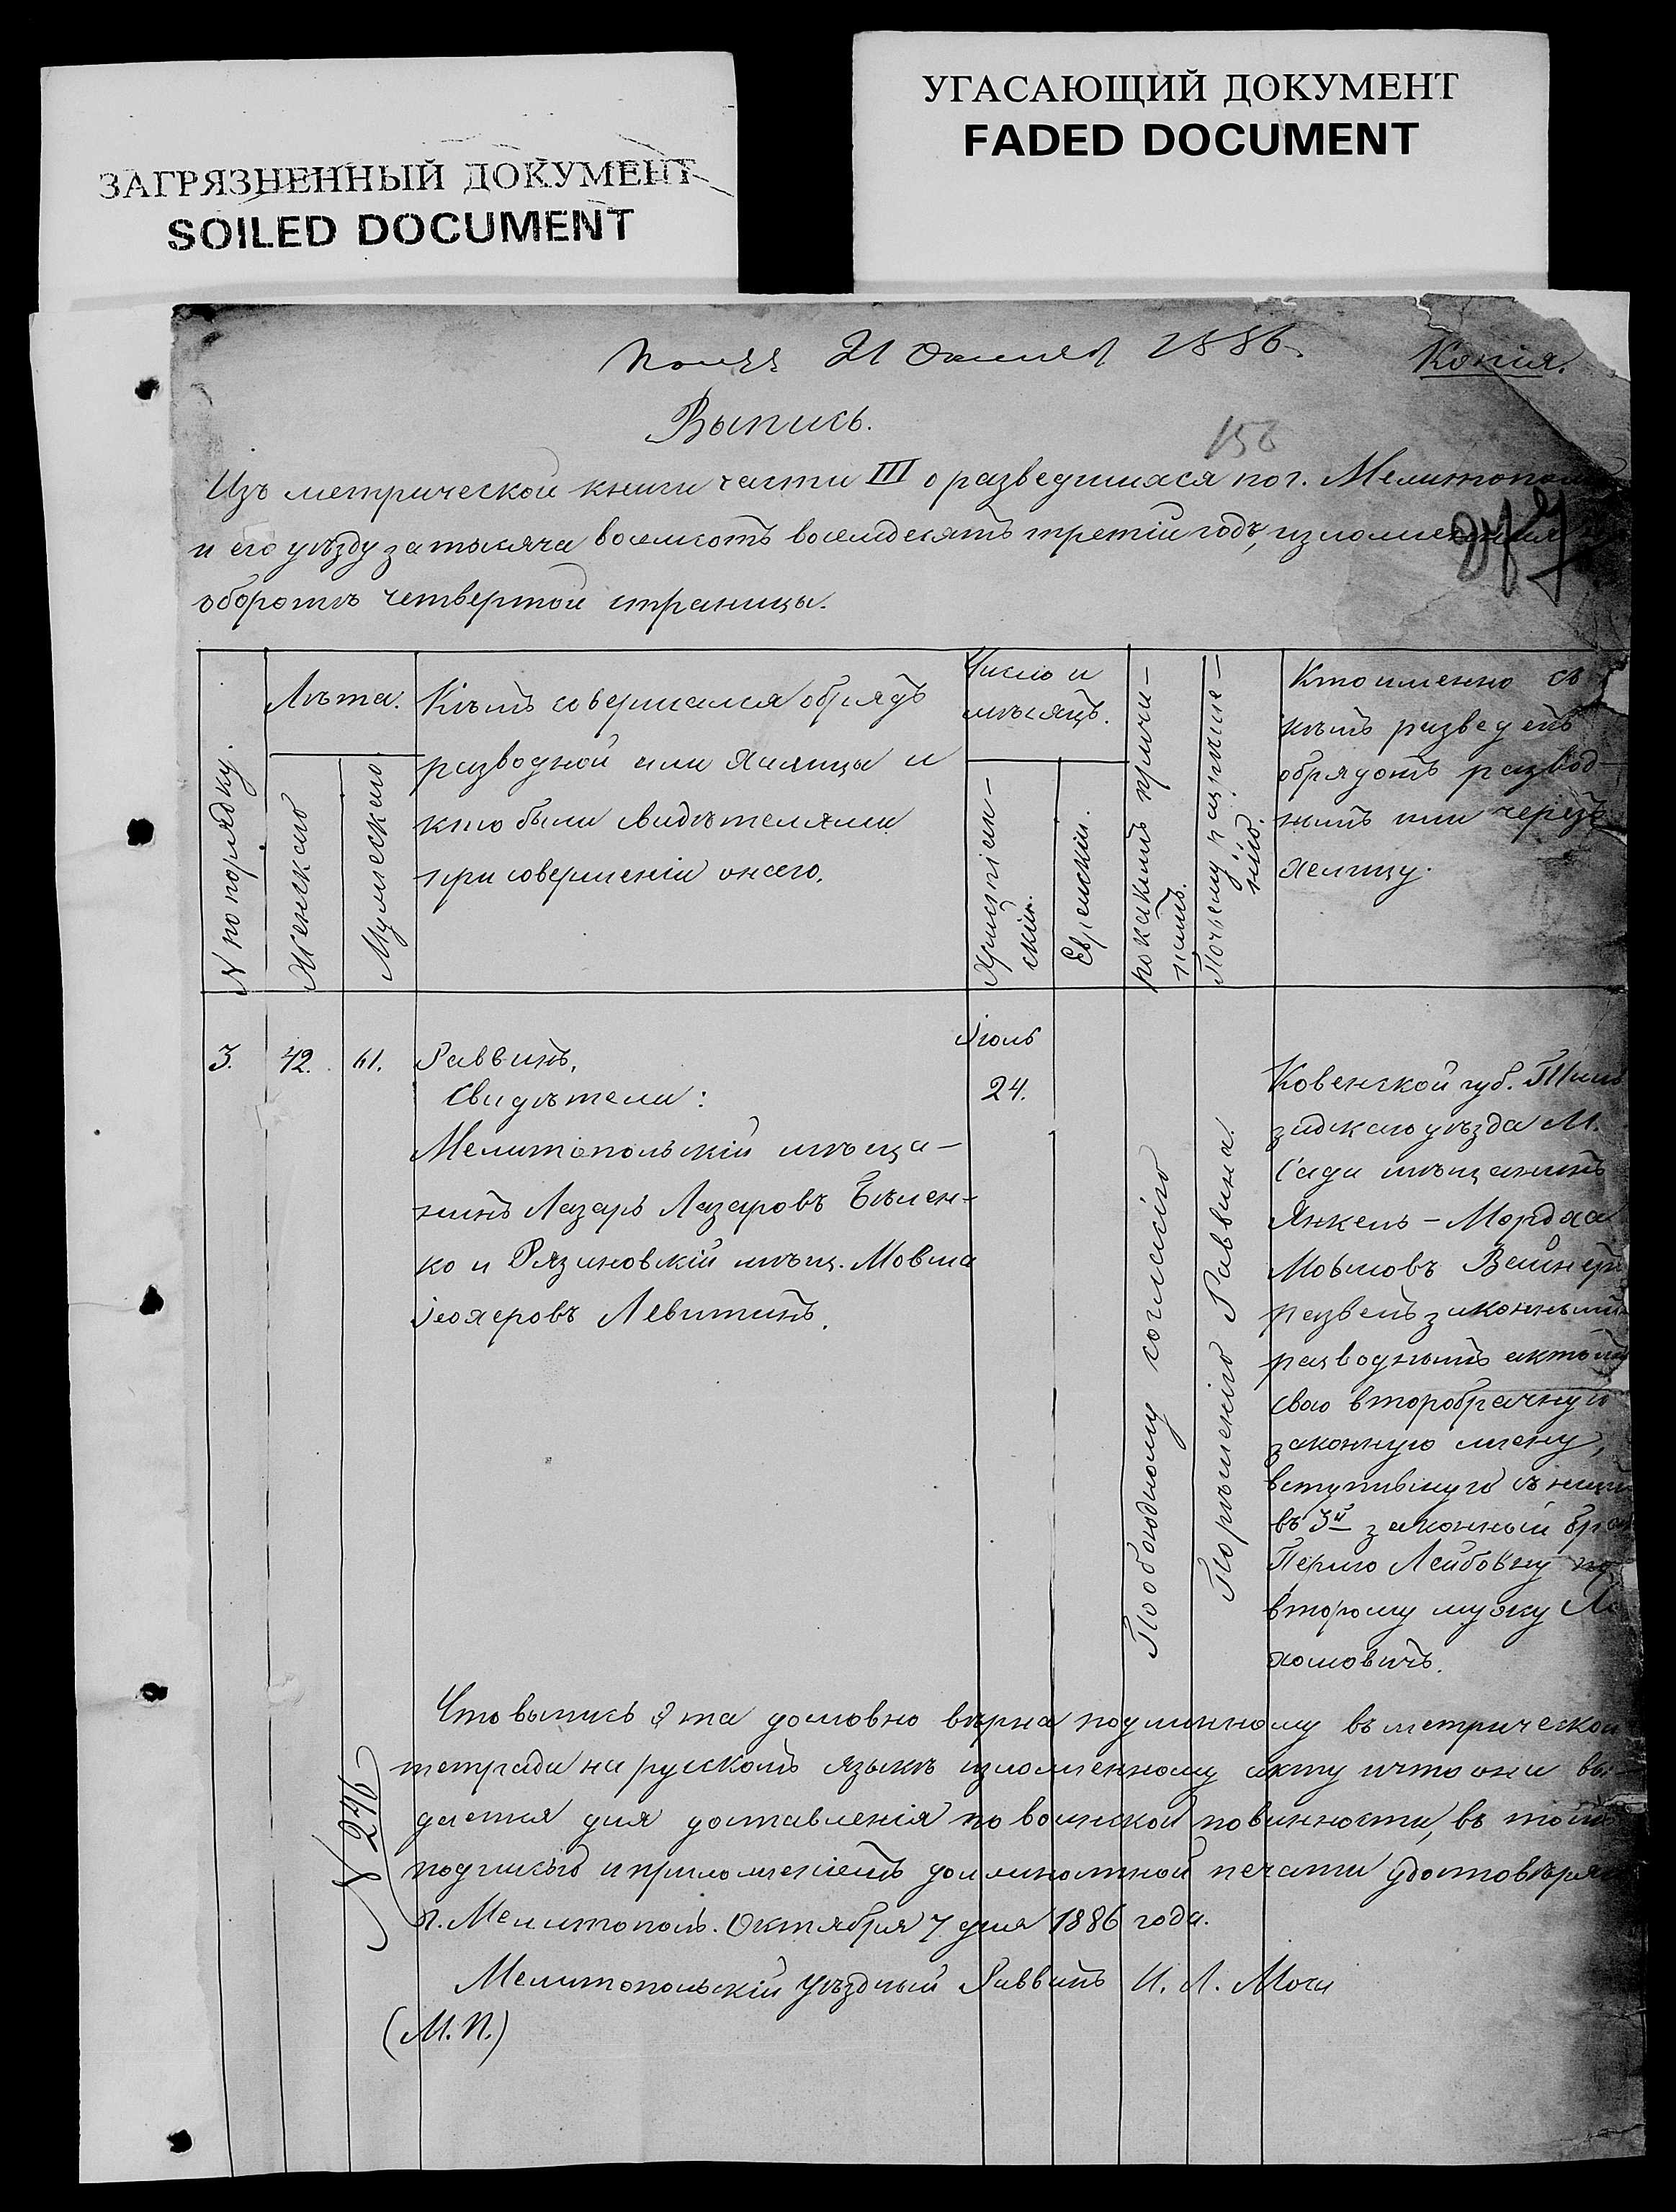 ЗАГРЯЗНЕННЫЙ ДОКУМЕНТ
SOILED DOCUMENT
УГАСАЮЩИЙ ДОКУМЕНТ
FADED DOCUMENT
21 1886
Копія.
Выпись.
156
Изъ метрической книги части III о разведшихся по г. Мелитополю
и его уѣзду за тысяча восемсотъ восемдесятъ третій годъ, изложенная
оборотѣ четвертой страницы.
N по порядку.
Лѣта.
Женскаго
Мужескаго
Кѣмъ совершался обрядъ
разводной или халица и
кто были свидѣтелями
при совершеніи онаго.
Число и
мѣсяцъ.
Христіан-
скій.
Еврейскій.
По какимъ причи-
намъ.
Почьему разрѣше-
нію.
Кто именно съ
кѣмъ разведенъ
обрядомъ развод-
нымъ или черезъ
хелицу.
3.
42.
61.
Раввинъ.
Свидѣтели:
Мелитопольскій мѣща-
нинъ Лазарь Лазаровъ Бѣлен-
ко и Рязановскій мѣщ. Мовша
Левитинъ.
Іюль
24.
По обоюдному согласію
По рѣшенію Раввина.
Ковенской губ. Тель
зидскаго уѣзда М.
Сяди мѣщанинъ
Янкель-Мордха
Мовшовъ Вайнер
развелъ законнымъ
разводнымъ актомъ
свою второбрачную
законную жену,
вступившую съ нимъ
въ 3й законный бра
Перлю Лейбовну по
второму мужу
хомовичъ.
Что выпись эта дословно вѣрна подлинному въ метрической
тетради на русскомъ языкѣ изложенному акту и что она вы-
дается для доставленія по воинской повинности, въ томъ
подписью и приложеніемъ должностной печати удостовѣряю
г. Мелитополь. Октября 7 дня 1886 года.
№ 246
Мелитопольскій Уѣздный Раввинъ И. Л.
(М.П.)